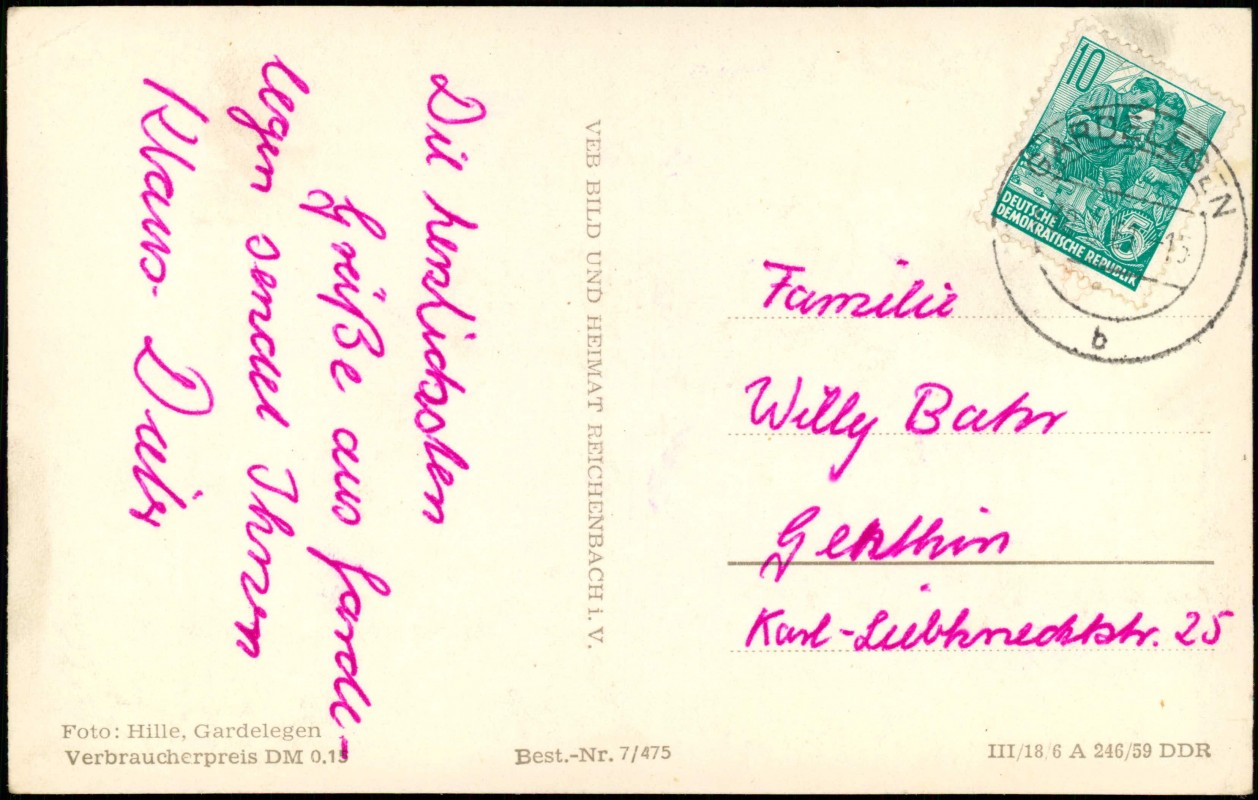 Die herzlichsten
Grüße aus Garde-
legen sendet Ihnen
Klaus-
VEB BILD UND HEIMAT REICHENBACH i. V.
10
DEUTSCHE
DEMOKRATISCHE REPUBLIK
5
GARDELEGEN
b
Familie
Willy Bahr
Genthin
Karl-Liebknechtstr. 25
Foto: Hille, Gardelegen
Verbraucherpreis DM 0.15
Best.-Nr. 7/475
III/18/6 A 246/59 DDR